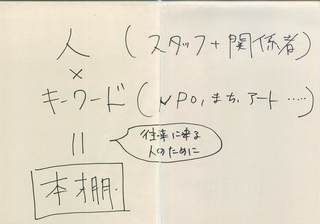 人 (スタッフ+関係者)
×
キーワード(NPO,まち,アート……)
||
往来に来る
人のために
本棚.